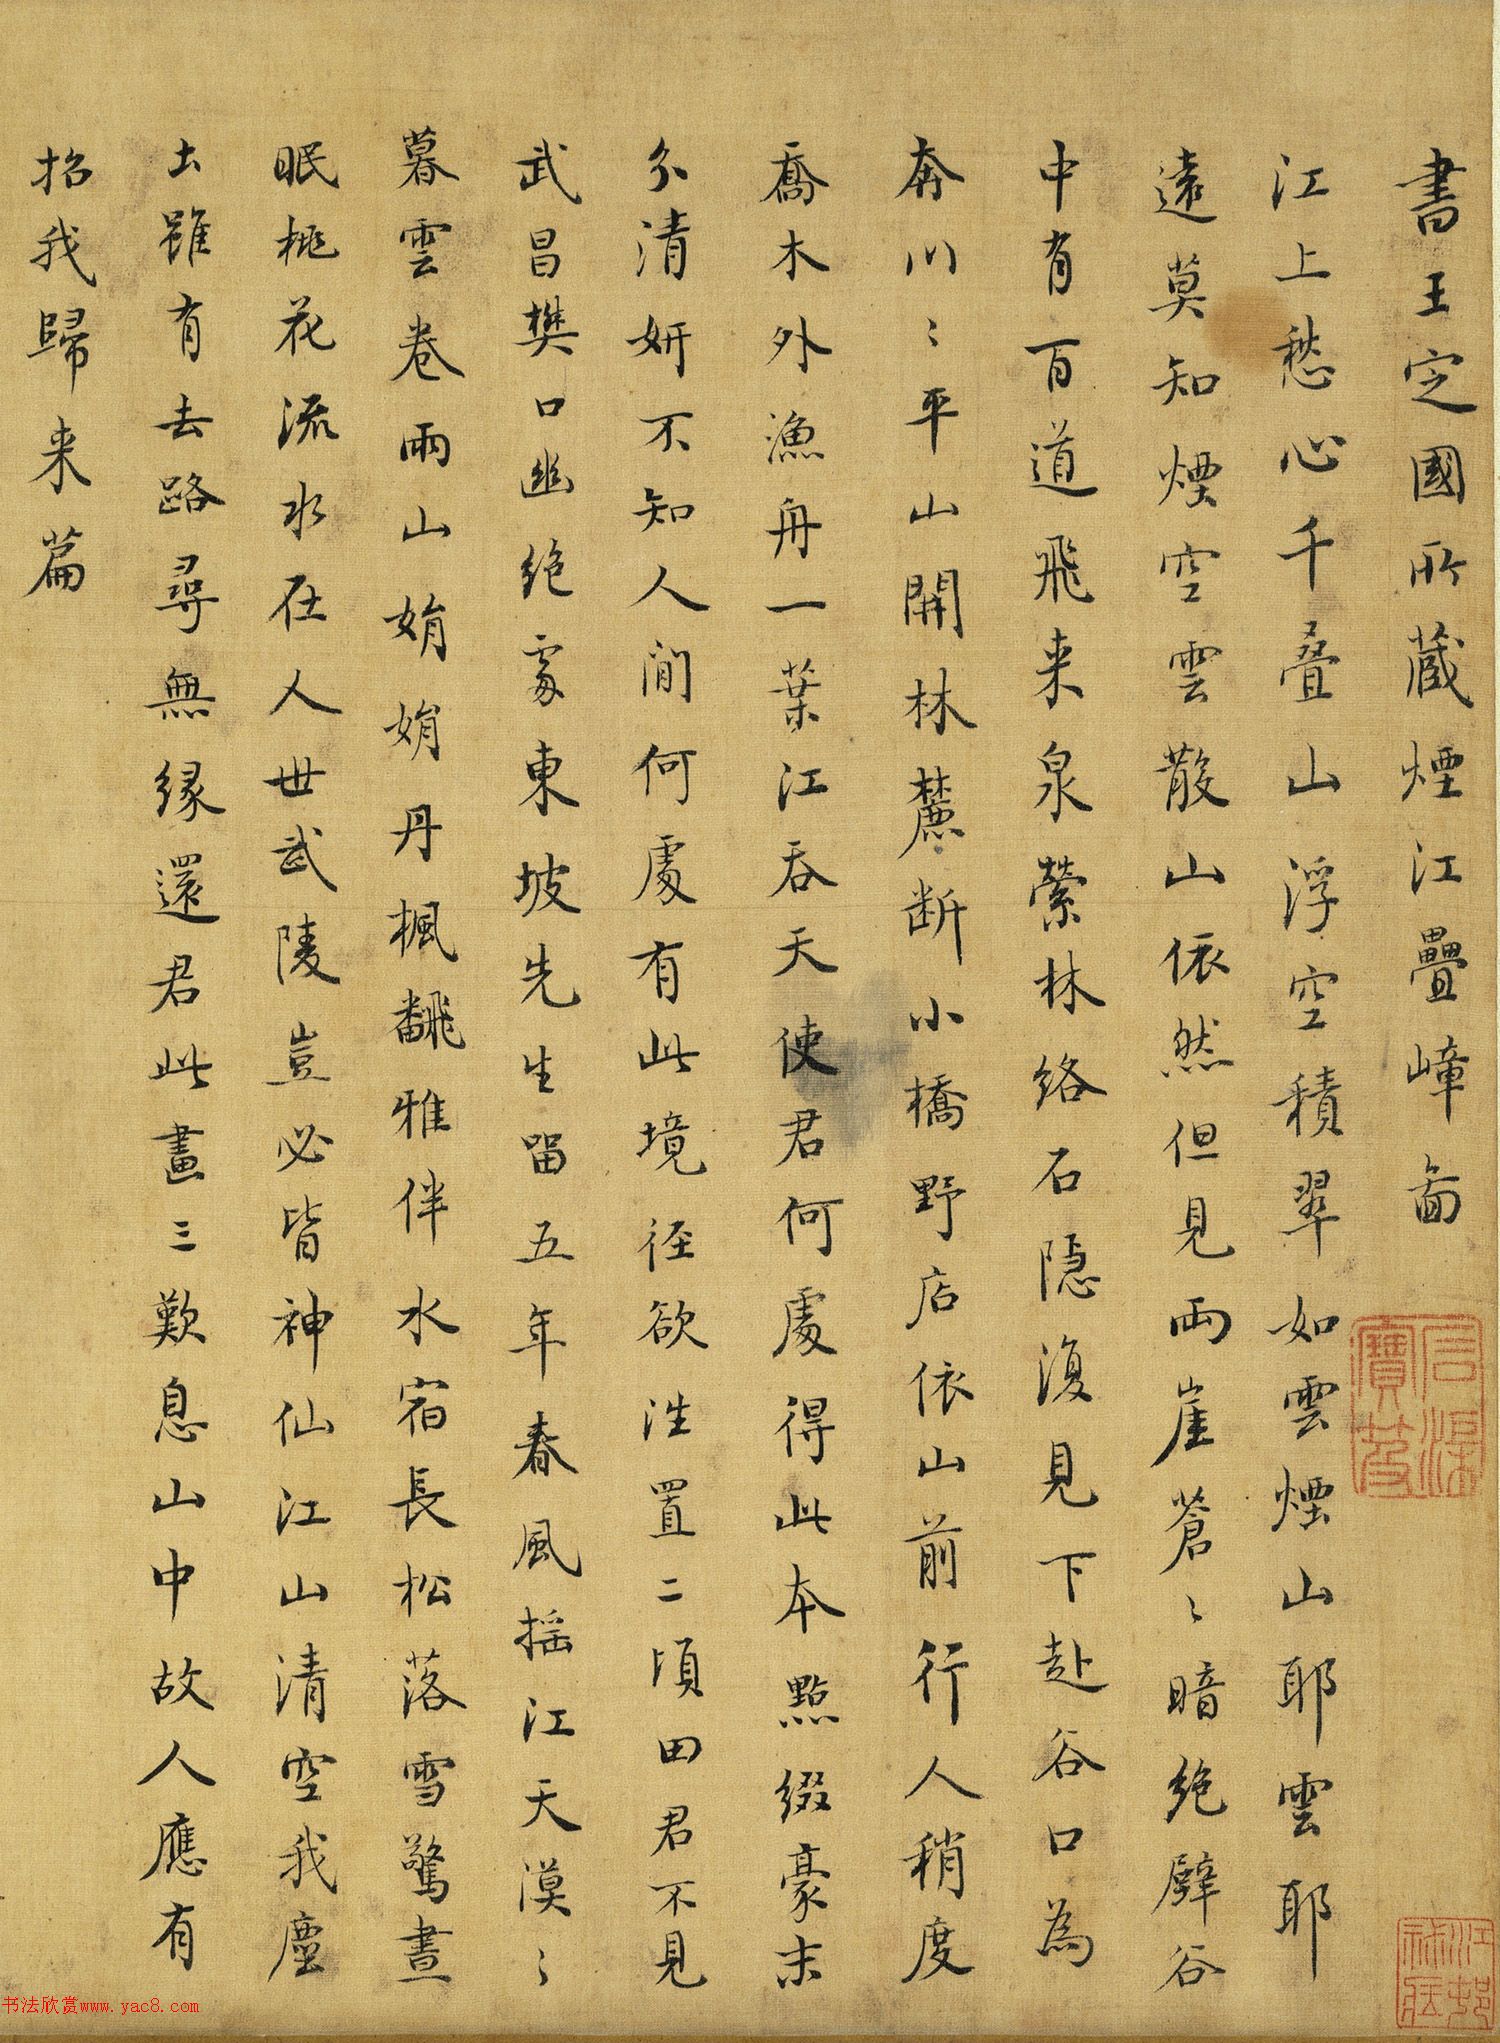 書王定國所藏煙江疊嶂畵
江上愁心千叠山浮空積翠如雲煙山耶雲耶
遠莫知煙空雲散山依然但見兩崖蒼〻暗絶壁谷
中有百道飛来泉縈林絡石隠復見下赴谷口為
奔川〻平山開林麓断小橋野店依山前行人稍度
喬木外漁舟一葉江吞天使君何處得此本點綴豪末
分清妍不知人間何處有此境徑欲往置二頃田君不見
武昌樊口幽絶處東坡先生留五年春風揺江天漠〻
暮雲卷雨山娟娟丹楓飜雅伴水宿長松落雪驚晝
眠桃花流水在人世武陵豈必皆神仙江山清空我塵
土雖有去路尋無緣還君此畫三歎息山中故人應有
招我歸来篇
书法欣赏www.yac8.com